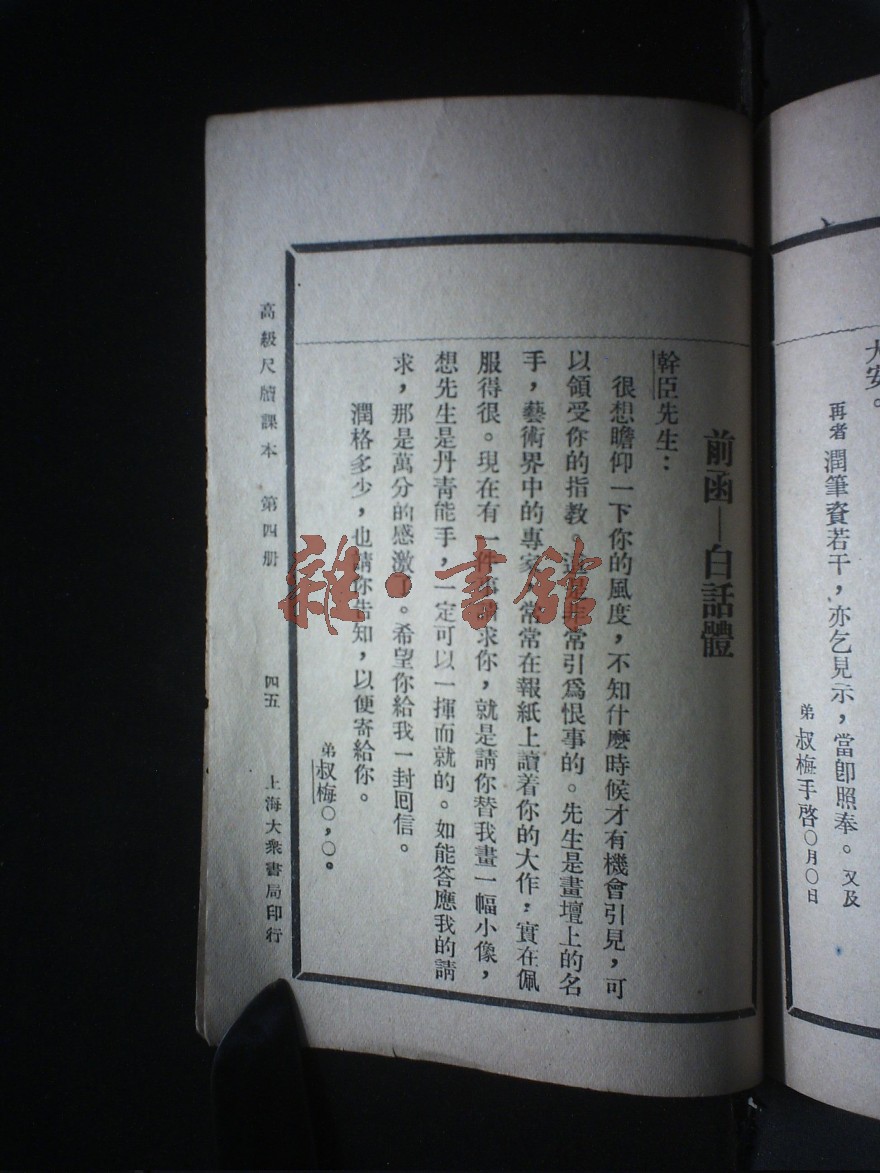 大安。
再者潤筆資若干，亦乞見示，當卽照奉。又及
弟叔梅手啓〇月〇日
前函—白話體
幹臣先生：
很想瞻仰一下你的風度，不知什麼時候才有機會引見，可
以領受你的指教。這是非常引爲恨事的。先生是畫壇上的名
手，藝術界中的專家，常常在報紙上讀着你的大作；實在佩
服得很。現在有一件事請求你，就是請你替我畫一幅小像，
想先生是丹靑能手，一定可以一揮而就的。如能答應我的請
求，那是萬分的感激了。希望你給我一封囘信。
潤格多少，也請你告知，以便寄給你。
弟叔梅〇，〇。
高級尺牘課本 第四册 四五 上海大衆書局印行
雜·書館